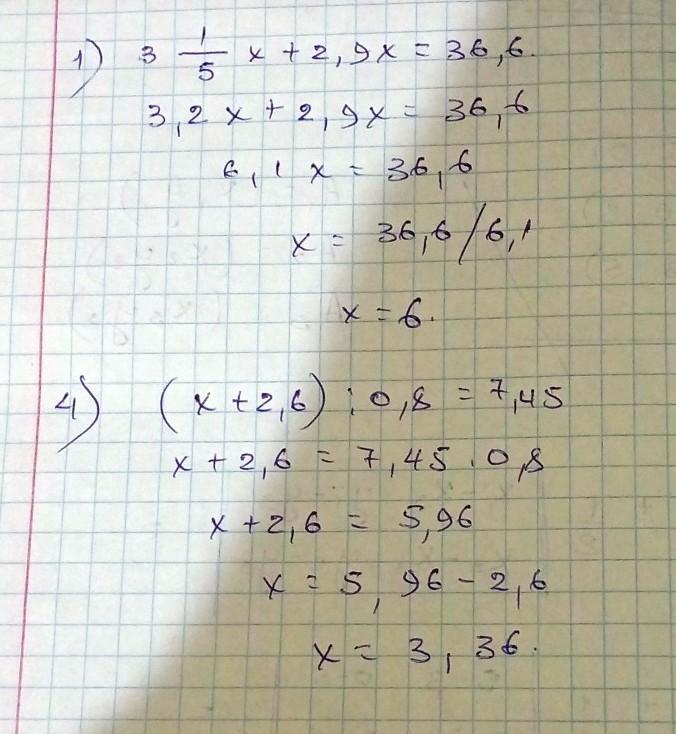 1) 3 1/5 x + 2,9x = 36,6.
3,2 x + 2,9x = 36,6
6,1 x = 36,6
x = 36,6 / 6,1
x = 6.
4) (x + 2,6) : 0,8 = 7,45
x + 2,6 = 7,45 . 0,8
x + 2,6 = 5,96
x = 5,96 - 2,6
x = 3,36.